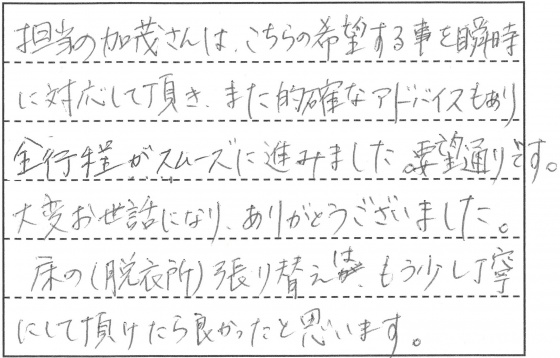 担当の加茂さんは、こちらの希望する事を瞬時
に対応して頂き、また的確なアドバイスもあり
全行程がスムーズに進みました。要望通りです。
大変お世話になり、ありがとうございました。
床の(脱衣所)張り替えは、もう少し丁寧
にして頂けたら良かったと思います。